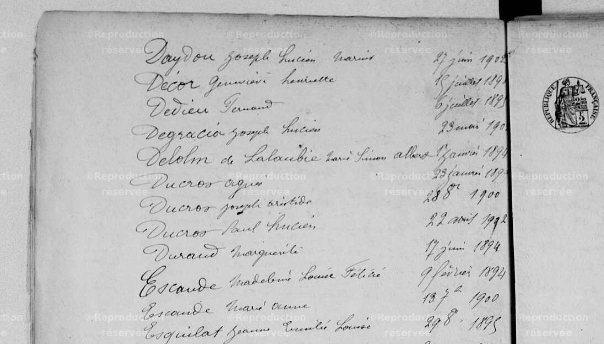 Daydou Joseph Lucien Marius 27 juin 1902
Décor Geneviève henriette 15 juillet 189
Dedieu Fernand 6 juillet 1895
Degracia Joseph Lucien 23 mai 190
Delolm de Lalaubie Marie Simon albert 1r janvier 1894
Ducros agnes 23 janvier 189
Ducros joseph aristide 28 8re 1900
Ducros Paul Lucien 22 avril 1902
Durand Marguerite 17 juin 1894
Escande Madeleine Louise Félicie 9 février 1894
Escande Marie anne 13 7re 1900
Esquilat Jeanne Emilie Louise 29 8re 1895
REPUBLIQUE FRANÇAISE
Reproduction réservée